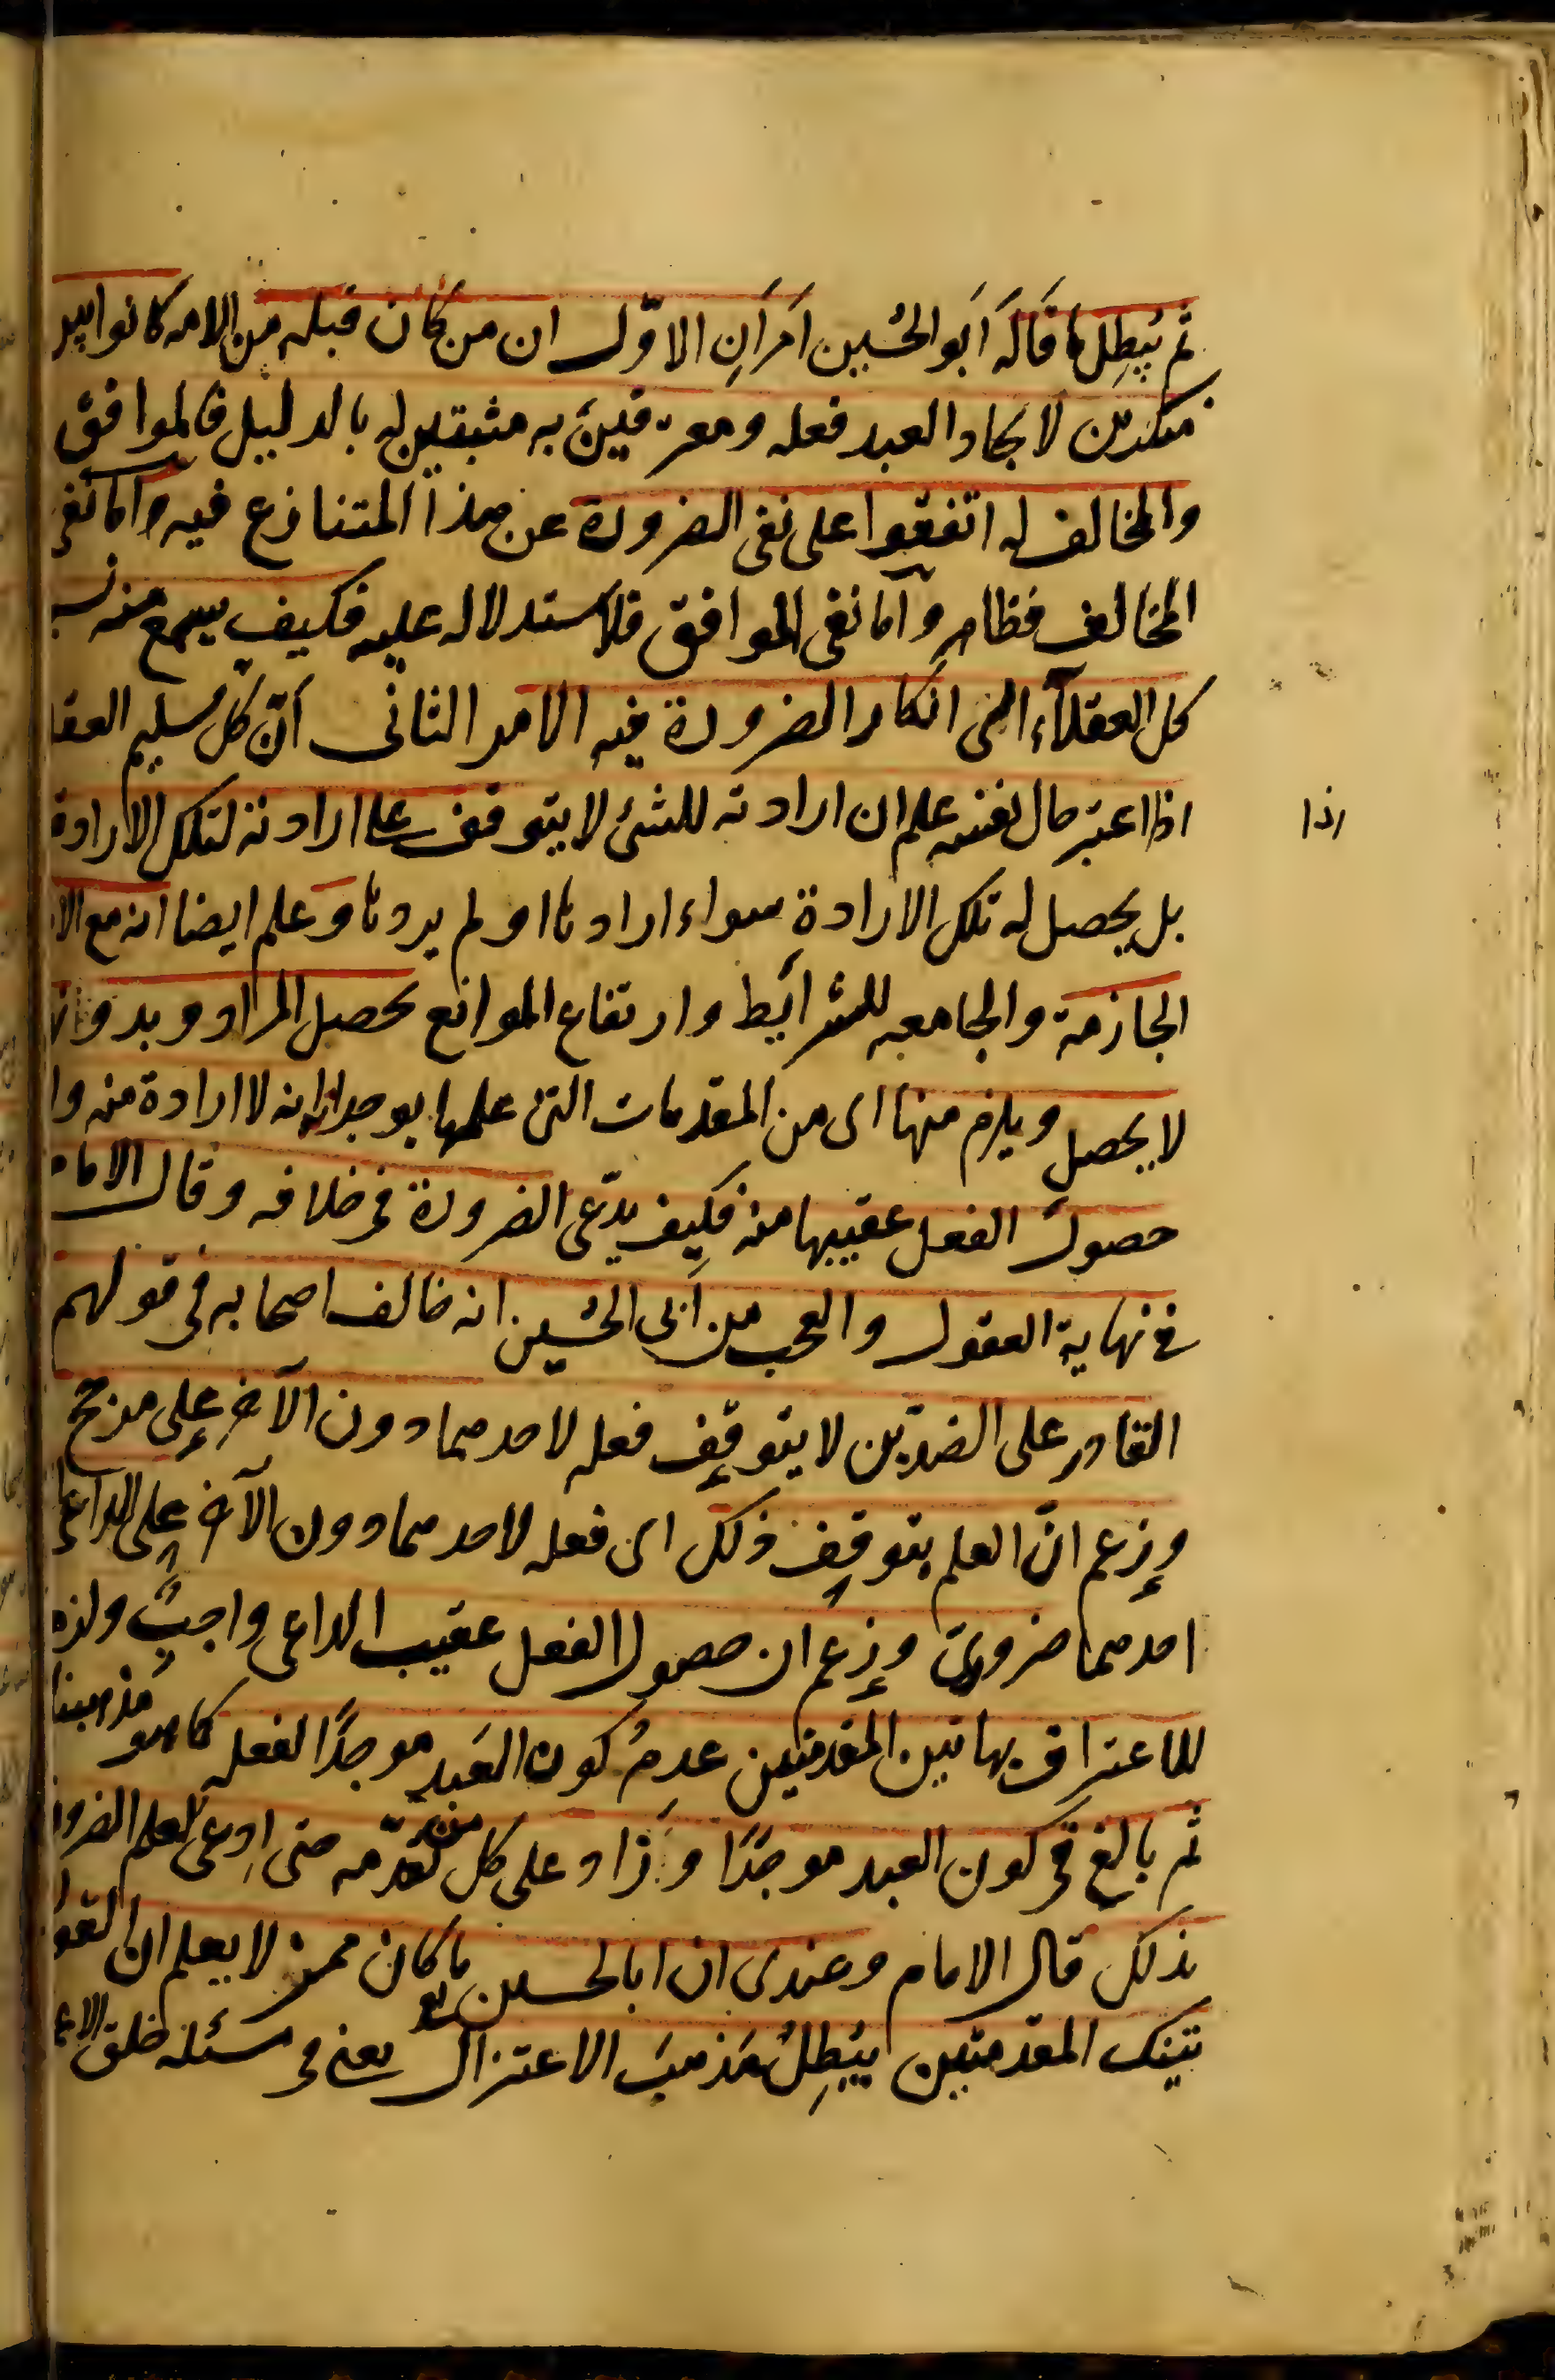 ثم يُبطِل ما قَالَه اَبَو الحُسين اَمرَانِ الاوّل ان من كان قبله من الامه كانوا بين
منكرين لايجاد العبد فعله ومعترفينَ به مثبتين له بالدليل فالموافق
والمخالف له اتفقوا على نفى الضرورة عن هذا المتنازع فيه واما نفى
المخالف فظاهِر وامّا نفى الموافق فلاستدلاله عليه فكيف يسمع منه نسبة
كل العقلآء الى انكار الضرورة فيه الامر الثانى اَنّ كل سليم العقل
اذا اعتبر حال نفسه علم ان ارادته للشئ لا يتوقف على ارادته لتلك الارادة
اذا
بل يحصل له تلك الارادة سواء ارادها او لم يردها وعلم ايضا انه مع الا
الجازمة والجامعه للشرايَط وارتفاع الموانع يحصل المراد وبدونها
لا يحصل ويلزم منها اى من المقدمات التى علمها بوجدانه انه لا ارادة منه ولا
حصول الفعل عقيبها منه فكِيف يدّعى الضرورة فى خلافه وقال الامام
فى نهاية العقول والعجب من اَبى الحُسين انه خالف اصحابه فى قولهم
القادر على الضدّين لا يتوقّف فعله لاحدهما دون الآخر على مرجح
وزعم انّ العلم بتوقف ذلك اى فعله لاحدهما دون الآخر على الداعى
احدهما ضرورىّ وزعم ان حصول الفعل عقيب الداعى واجبٌ ولزم
للاعتراف بهاتين المقدمتين عدمُ كون العَبد موجدًا لفعله كما هو مذهبنا
ثم بالغ فى كون العبد موجدًا وَزاد على كل من تقدّمه حتى ادعى العلم الضرورى
بذلك قال الامام وعندى ان ابا الحسين ما كان ممن لا يعلم ان القول
بتينك المقدمتين يُبطِلُ مَذهبَ الاعتزال يعنى فى مسئلة خلق الاع